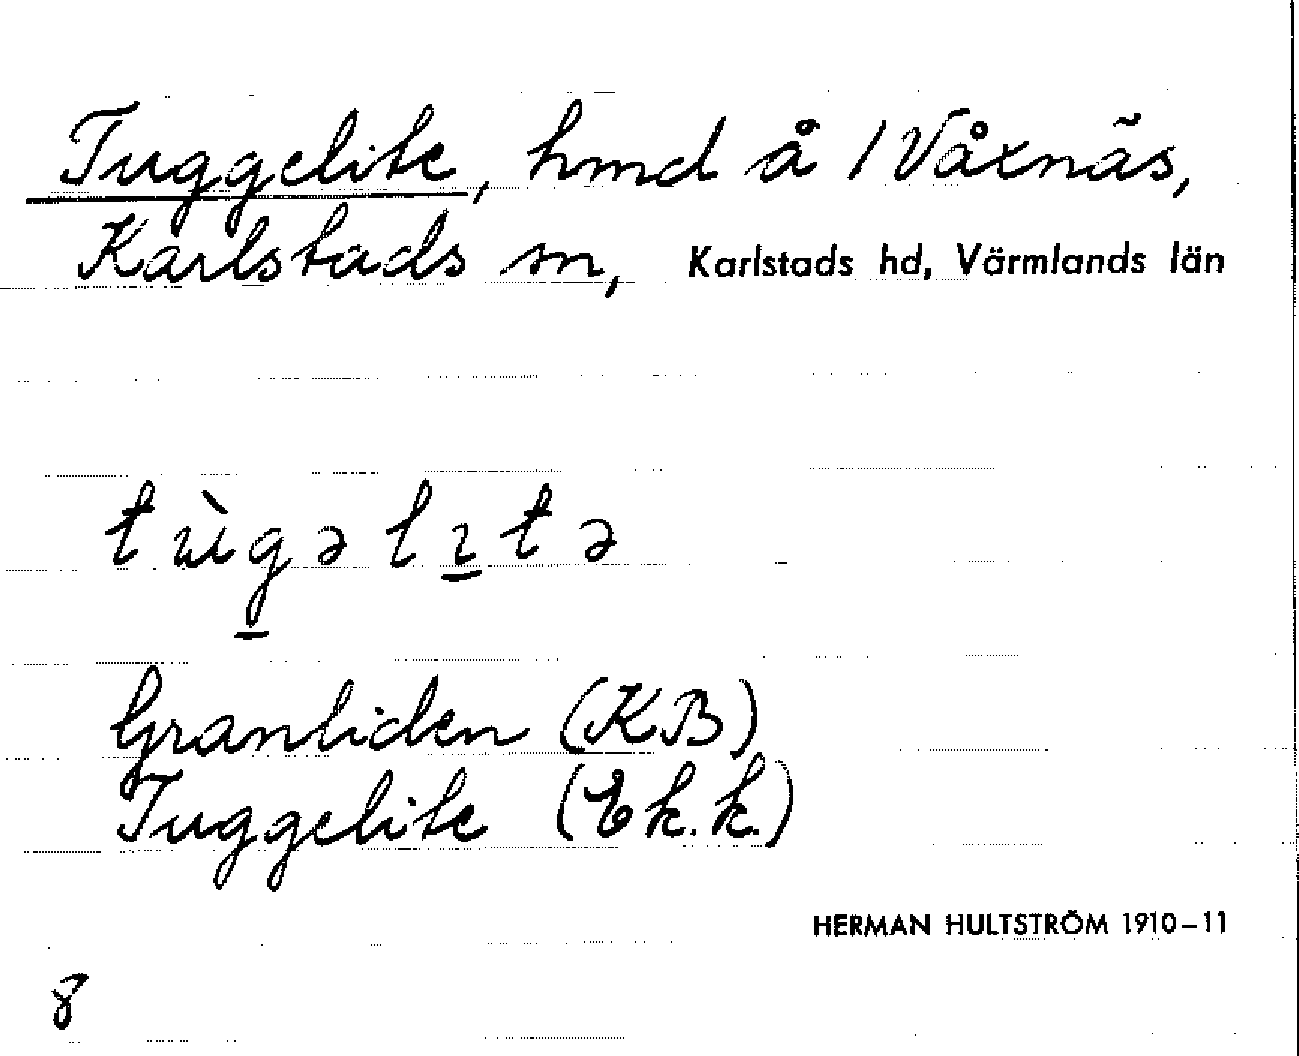 Tuggelite, hmd å 1 Våxnäs,
Karlstads sn, Karlstads hd, Värmlands län
tùgəlıtə
Granliden (KB)
Tuggelite (Ek.k.)
HERMAN HULTSTRÖM 1910–11
8